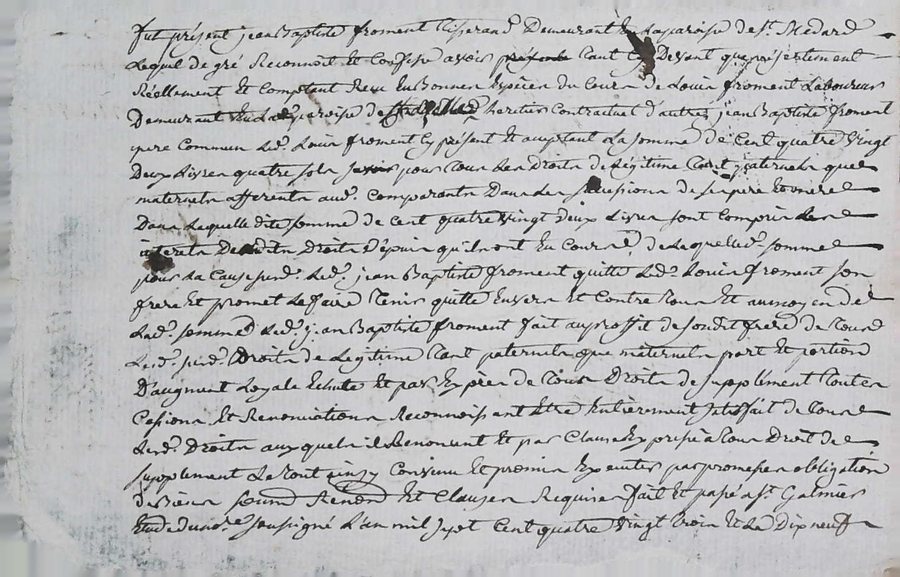 fut présent jean Baptiste froment tisserand Demeurant En la paroise de St. Medard
Lequel de gré Reconnoit Et Confesse avoir tant Cy Devant que présentement
Réellement Et Comptant Reçu En Bonnes Espèces du Cours de Louis froment Laboureur
Demeurant En lad. paroise de St. Medard heritier Contractuel d'autre jean Baptiste froment
pere Commun Led. Louis froment Cy présent Et acceptant La somme de Cent quatre Vingt
Deux Livres quatre sols pour Tous Les Droits de Légitime Tant paternels que
maternels afferents aud. Comparant Dans Les successions de ses pere Et mere
Dans Laquelle dite somme de Cent quatre Vingt deux Livres sont Compris Les
interets Desdits Droits Depuis qu'ils ont Eu Cours de Laquelle d. somme
pour La Cause susd. Led. jean Baptiste froment quitte Led. Louis froment son
frere Et promet Le faire Tenir quitte Envers Et Contre Tous Et au moyen de
Lad. somme Led. jean Baptiste froment fait au proffit de sondit frere de Tous
Lesd. susd. Droits de Légitime Tant paternels que maternels part Et portion
D'augment Loyale Echute Et par Exprès de Tous Droits de supplément Toutes
Cessions Et Renonciations Reconnoissant Etre Entièrement satisfait de Tous
Lesd. Droits auxquels il Renonce Et par Clause Expresse a Tous Droit de
supplement Le tout ainsy Convenu Et promis Executer par promesse obligation
de Biens soumis Renond Et Clauses Requises fait Et passé a St. Galmier
Etude du nore. soussigné L'an mil sept Cent quatre Vingt trois Et Le Dix neuf